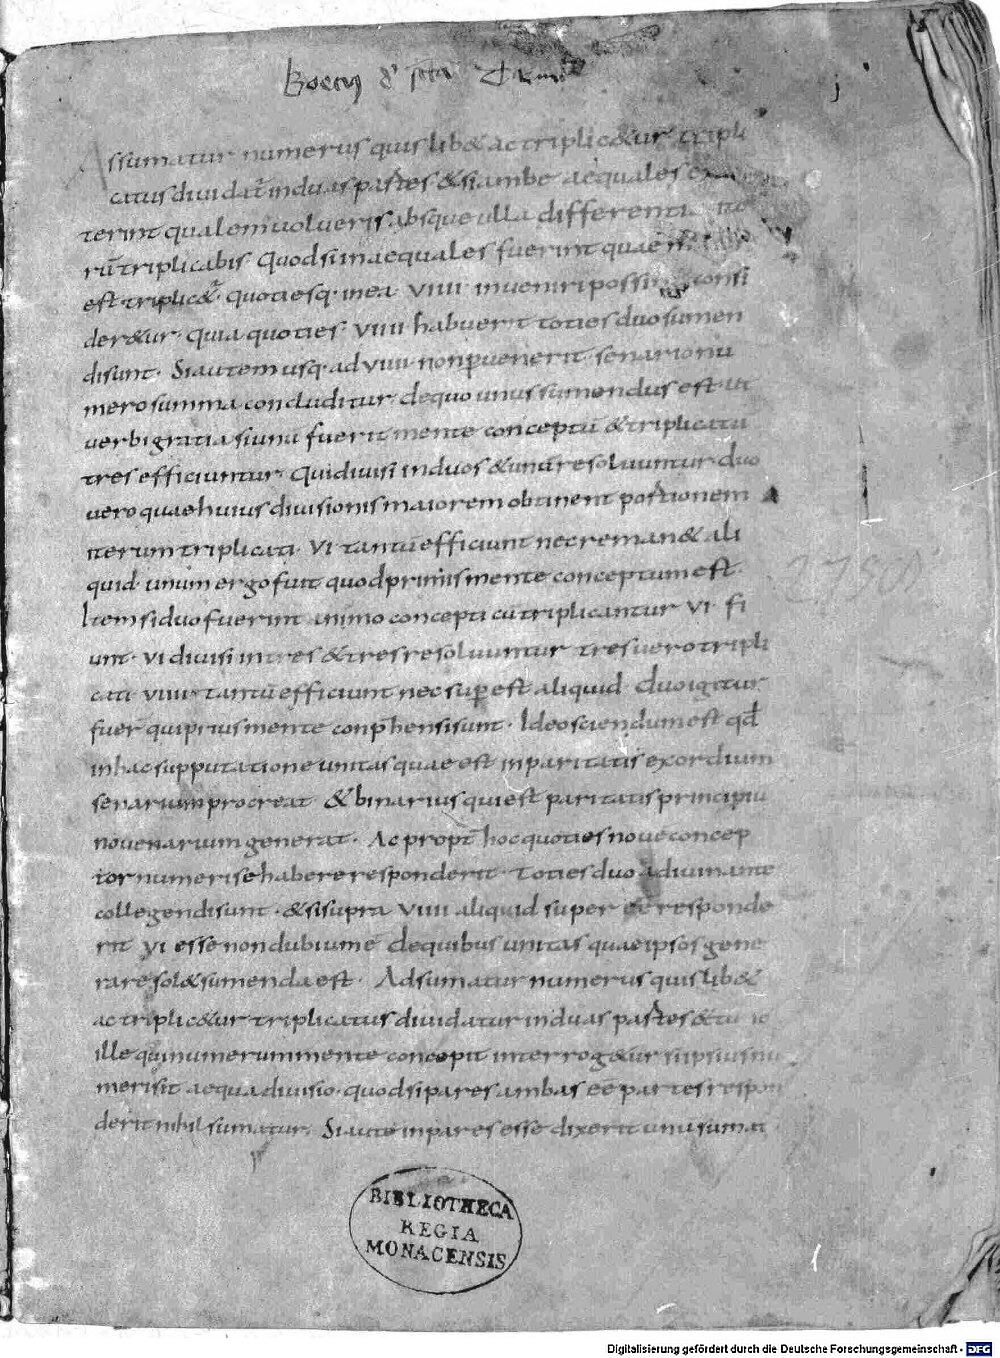 Boecius de sancta Trini
j
Assumatur numerus quislib& ac triplic&ur tripli
catus diuidat̄ in duas partes & si ambe aequales
terint qualem uolueris absque ulla differenti ite
rū triplicabis Quod si inaequales fuerint quae
est triplic& quotiesq· in ea VIIII inueniri possi consi
der&ur · Quia quoties VIIII habuerit toties duo sumen
di sunt · Si autem usq· ad VIIII non puenerit senario nu
mero summa concluditur de quo unus sumendus est · ut
uerbi gratia si unū fuerit mente conceptū & triplicatū
tres efficiuntur Qui diuisi in duos & unū resoluuntur duo
uero quae huius diuisionis maiorem obtinent portionem
iterum triplicati · VI tantū efficiunt nec reman& ali
quid unum ergo fuit quod primis mente conceptum est ·
Item si duo fuerint animo concepti cū triplicantur VI fi
unt · VI diuisi in tres & tres resoluuntur tres uero tripli
cati VIIII tantū efficiunt nec sup est aliquid duo igitur
fuer̄ qui prius mente conphensi sunt · Ideo sciendum est qđ
in hac supputatione unitas quae est inparitatis exordium
senarium procreat & binarius qui est paritatis principiū
nouenarium generat · Ac propt̄ hoc quoties noue concep
tor numeri se habere responderit · Toties duo a diuinante
collegendi sunt · & si supra VIIII aliquid super eē responde
rit VI esse non dubium ē de quibus unitas quae ipsos gene
rare sol& sumenda est · Adsumatur numerus quislib&
ac triplic&ur triplicatus diuidatur in duas partes &
ille qui numerum mente concepit interrog&ur si ipsius nu
meri sit aequa diuisio · quod si pares ambas eē partes respon
derit nihil sumatur · Si autē inpares esse dixerit unū sumat
BIBLIOTHECA
REGIA
MONACENSIS
Digitalisierung gefördert durch die Deutsche Forschungsgemeinschaft - DFG